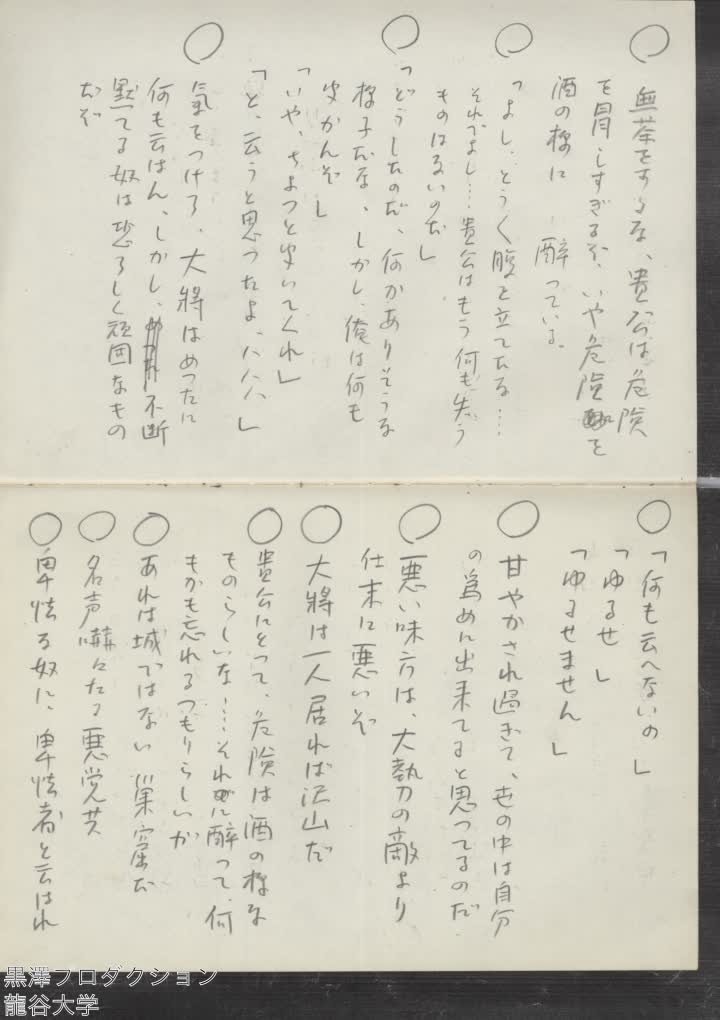 無茶をするな、貴公は危険
を冒しすぎるぞ、いや危険を
酒の様に酔っている。
「よし、とう〱腹を立てたな……
それでよし……貴公はもう何も失う
ものはないのだ」
「どうしたのだ、何かありそうな
様子だな、しかし、俺は何も
史かんぞ」
「いや、ちよつと史いてくれ」
「と、云うと思つたよ、ハハハ、」
氣をつけろ、大將はめつたに
何も云はん、しかし、不断
黙つてる奴は恐ろしく頑固なもの
だぞ
「何も云へないの」
「ゆるせ」
「ゆるせません」
甘やかされ過ぎて、世の中は自分
の爲めに出来てると思つてるのだ
悪い味方は、大勢の敵より
仕末に悪いぞ
大將は一人居れば沢山だ
貴公にとつて、危険は酒の様な
ものらしいな……それに酔って、何
もかも忘れるつもりらしいが
あれは城ではない 巣窟だ
名声嘖々たる悪党共
卑怯な奴に、卑怯者と云はれ
黒澤プロダクション
龍谷大学